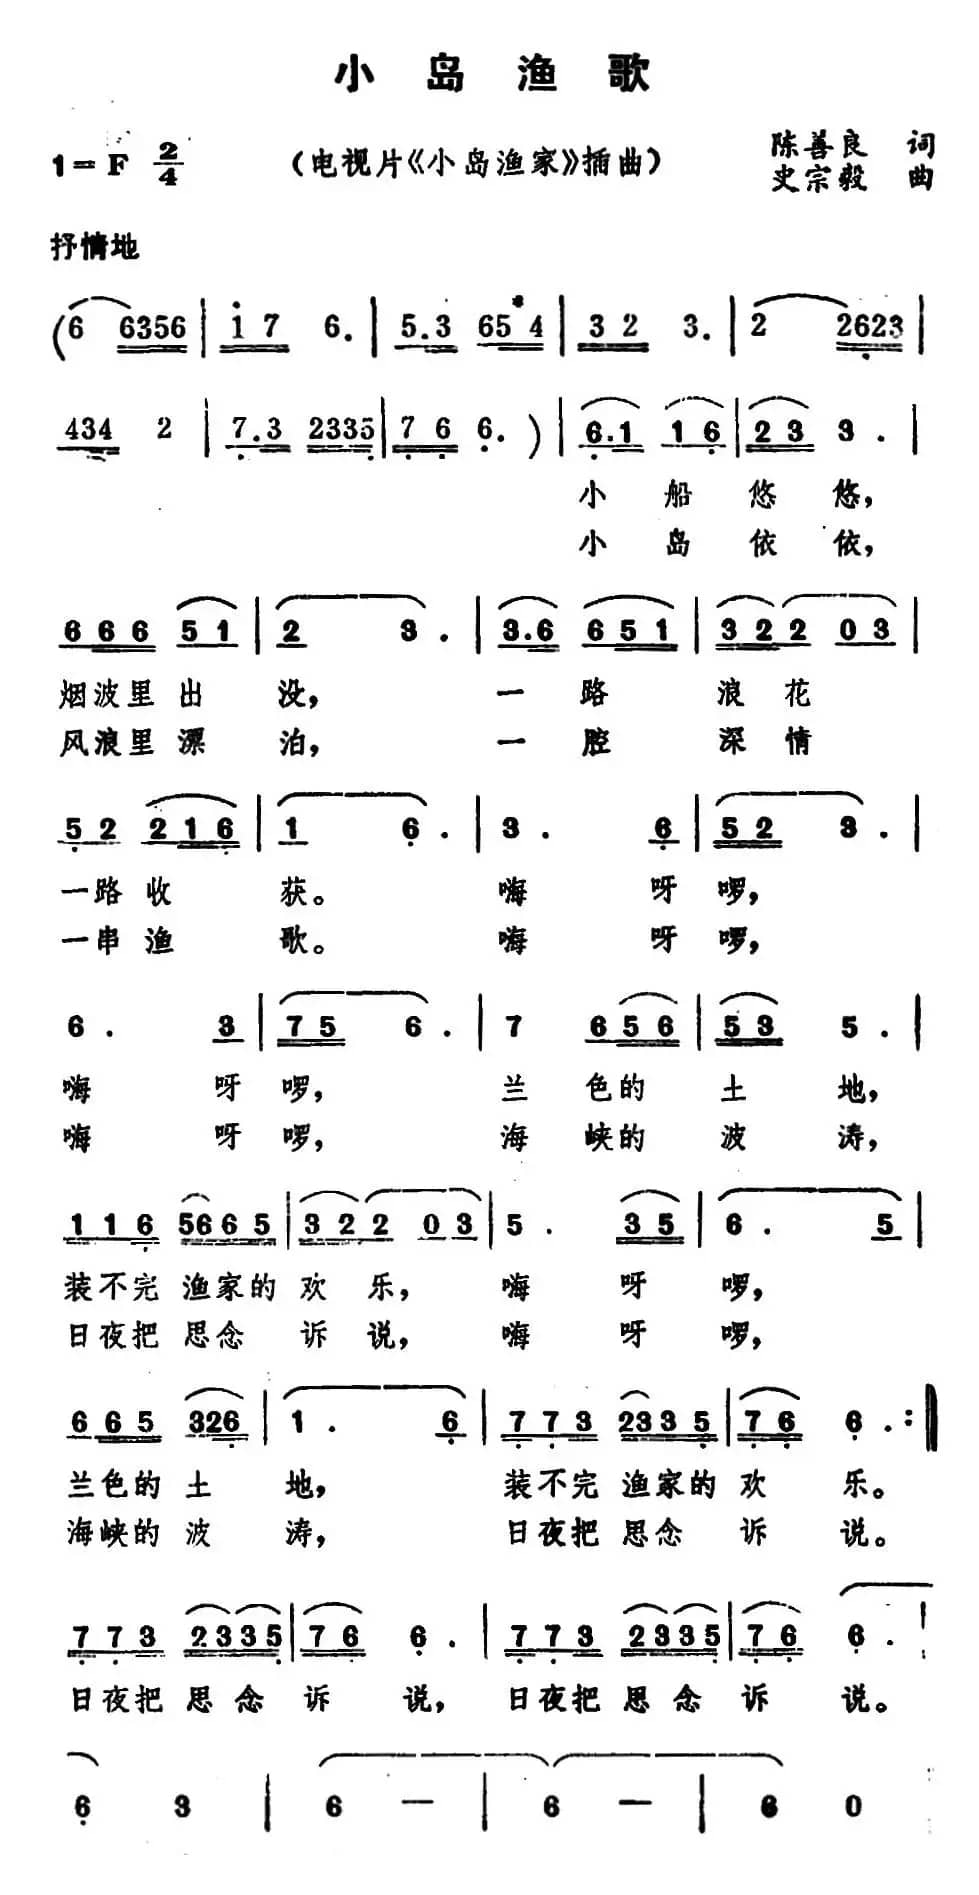 小岛渔歌
1=F 2/4 (电视片《小岛渔家》插曲) 陈善良 词
史宗毅 曲
抒情地
(6 6356 | 1 7 6. | 5.3 65 4 | 3 2 3. | 2 2623 |
434 2 | 7.3 2335 | 7 6 6. ) | 6.1 1 6 | 2 3 3. |
小 船 悠 悠,
小 岛 依 依,
6 6 6 5 1 | 2 3. | 3.6 6 5 1 | 3 2 2 0 3 |
烟波里 出 没, 一 路 浪 花
风浪里 漂 泊, 一 腔 深 情
5 2 2 1 6 | 1 6. | 3. 6 | 5 2 3. |
一路 收 获。 嗨 呀 啰,
一串 渔 歌。 嗨 呀 啰,
6. 3 | 7 5 6. | 7 6 5 6 | 5 3 5. |
嗨 呀 啰, 兰 色的 土 地,
嗨 呀 啰, 海 峡的 波 涛,
1 1 6 5 6 6 5 | 3 2 2 0 3 | 5. 3 5 | 6. 5 |
装不完 渔家的 欢 乐, 嗨 呀 啰,
日夜把 思念 诉 说, 嗨 呀 啰,
6 6 5 3 2 6 | 1. 6 | 7 7 3 2 3 3 5 | 7 6 6. :|
兰色的 土 地, 装不完 渔家的 欢 乐。
海峡的 波 涛, 日夜把 思念 诉 说。
7 7 3 2 3 3 5 | 7 6 6. | 7 7 3 2 3 3 5 | 7 6 6. |
日夜把 思 念 诉 说, 日夜把 思 念 诉 说。
6 3 | 6 — | 6 — | 6 0